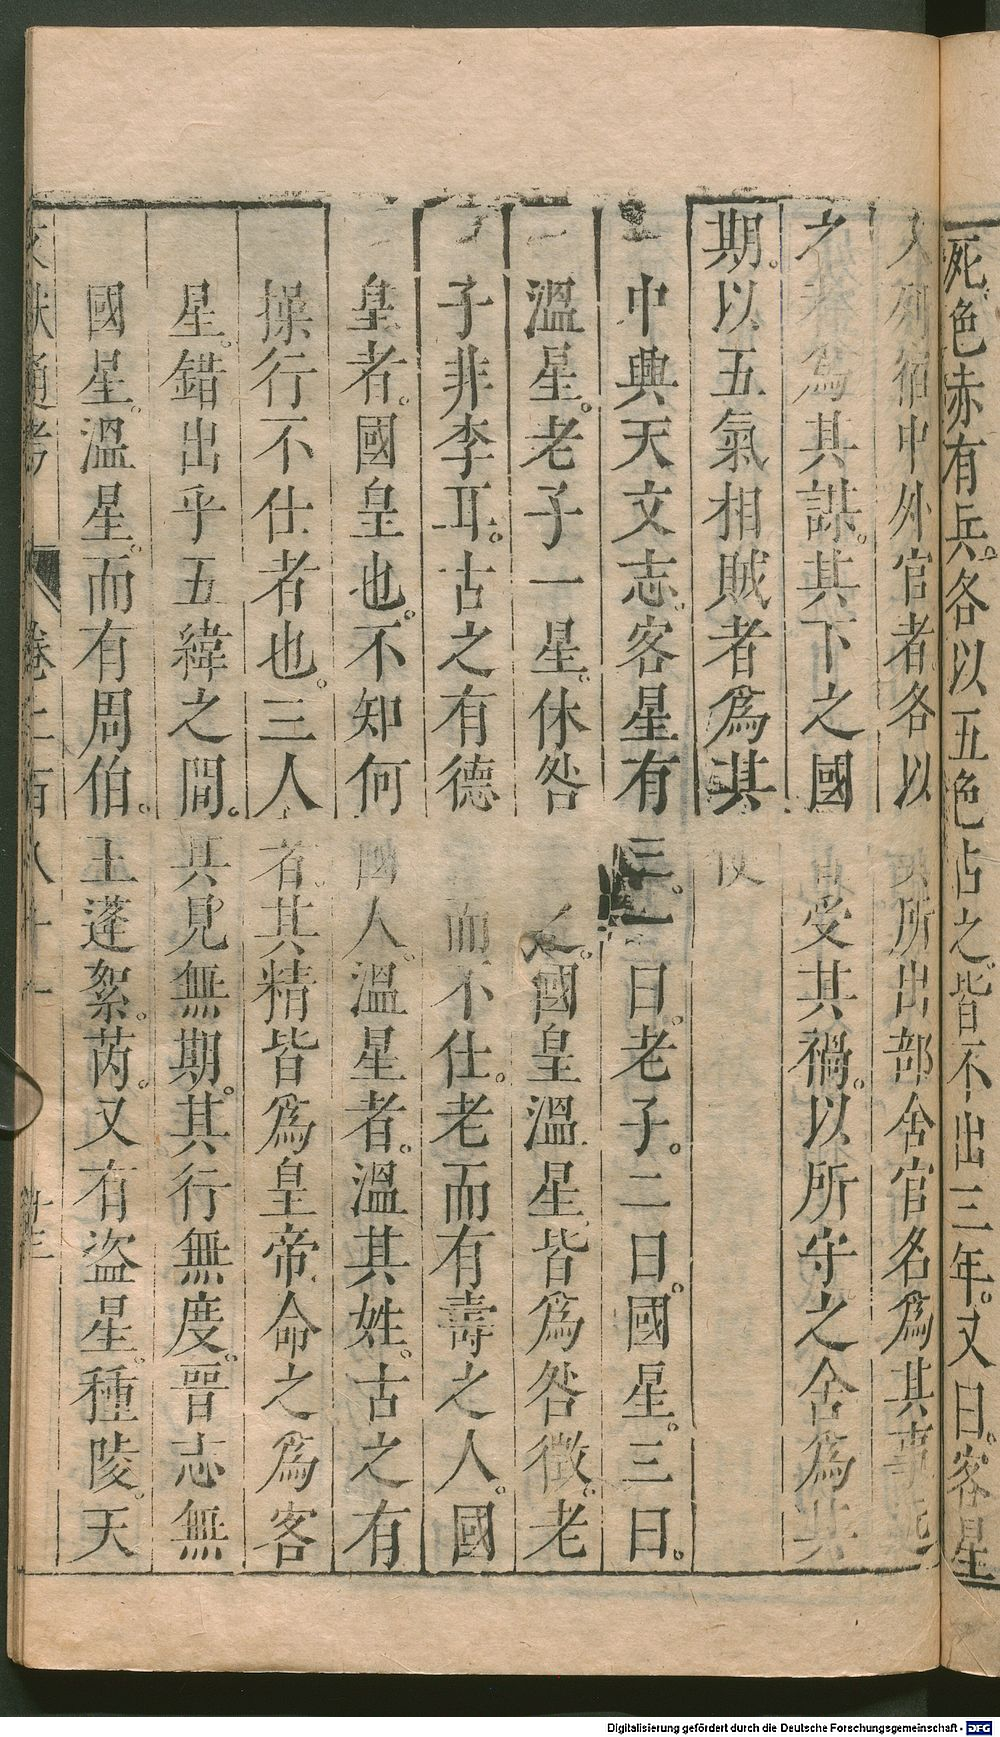 死色赤有兵。各以五色占之。皆不出三年。又曰。客星
入列宿中外官者各以其所出部舍官名爲其事
之爲其謀。其下之國受其禍。以所守之舍爲其
期。以五氣相賊者爲其使
中興天文志。客星有三。一曰。老子。二曰。國星。三曰。
溫星。老子一星。休咎國皇溫星。皆爲咎徵。老
子非李耳。古之有德而不仕。老而有壽之人。國
皇者。國皇也。不知何國人。溫星者。溫其姓。古之有
操行不仕者也。三人者。其精皆爲皇帝命之爲客
星。錯出乎五緯之間。其見無期。其行無度。晉志無
國星。溫星。而有周伯。王蓬絮。芮。又有盜星。種陵。天
文獻通考 卷二百八十一
Digitalisierung gefördert durch die Deutsche Forschungsgemeinschaft - DFG